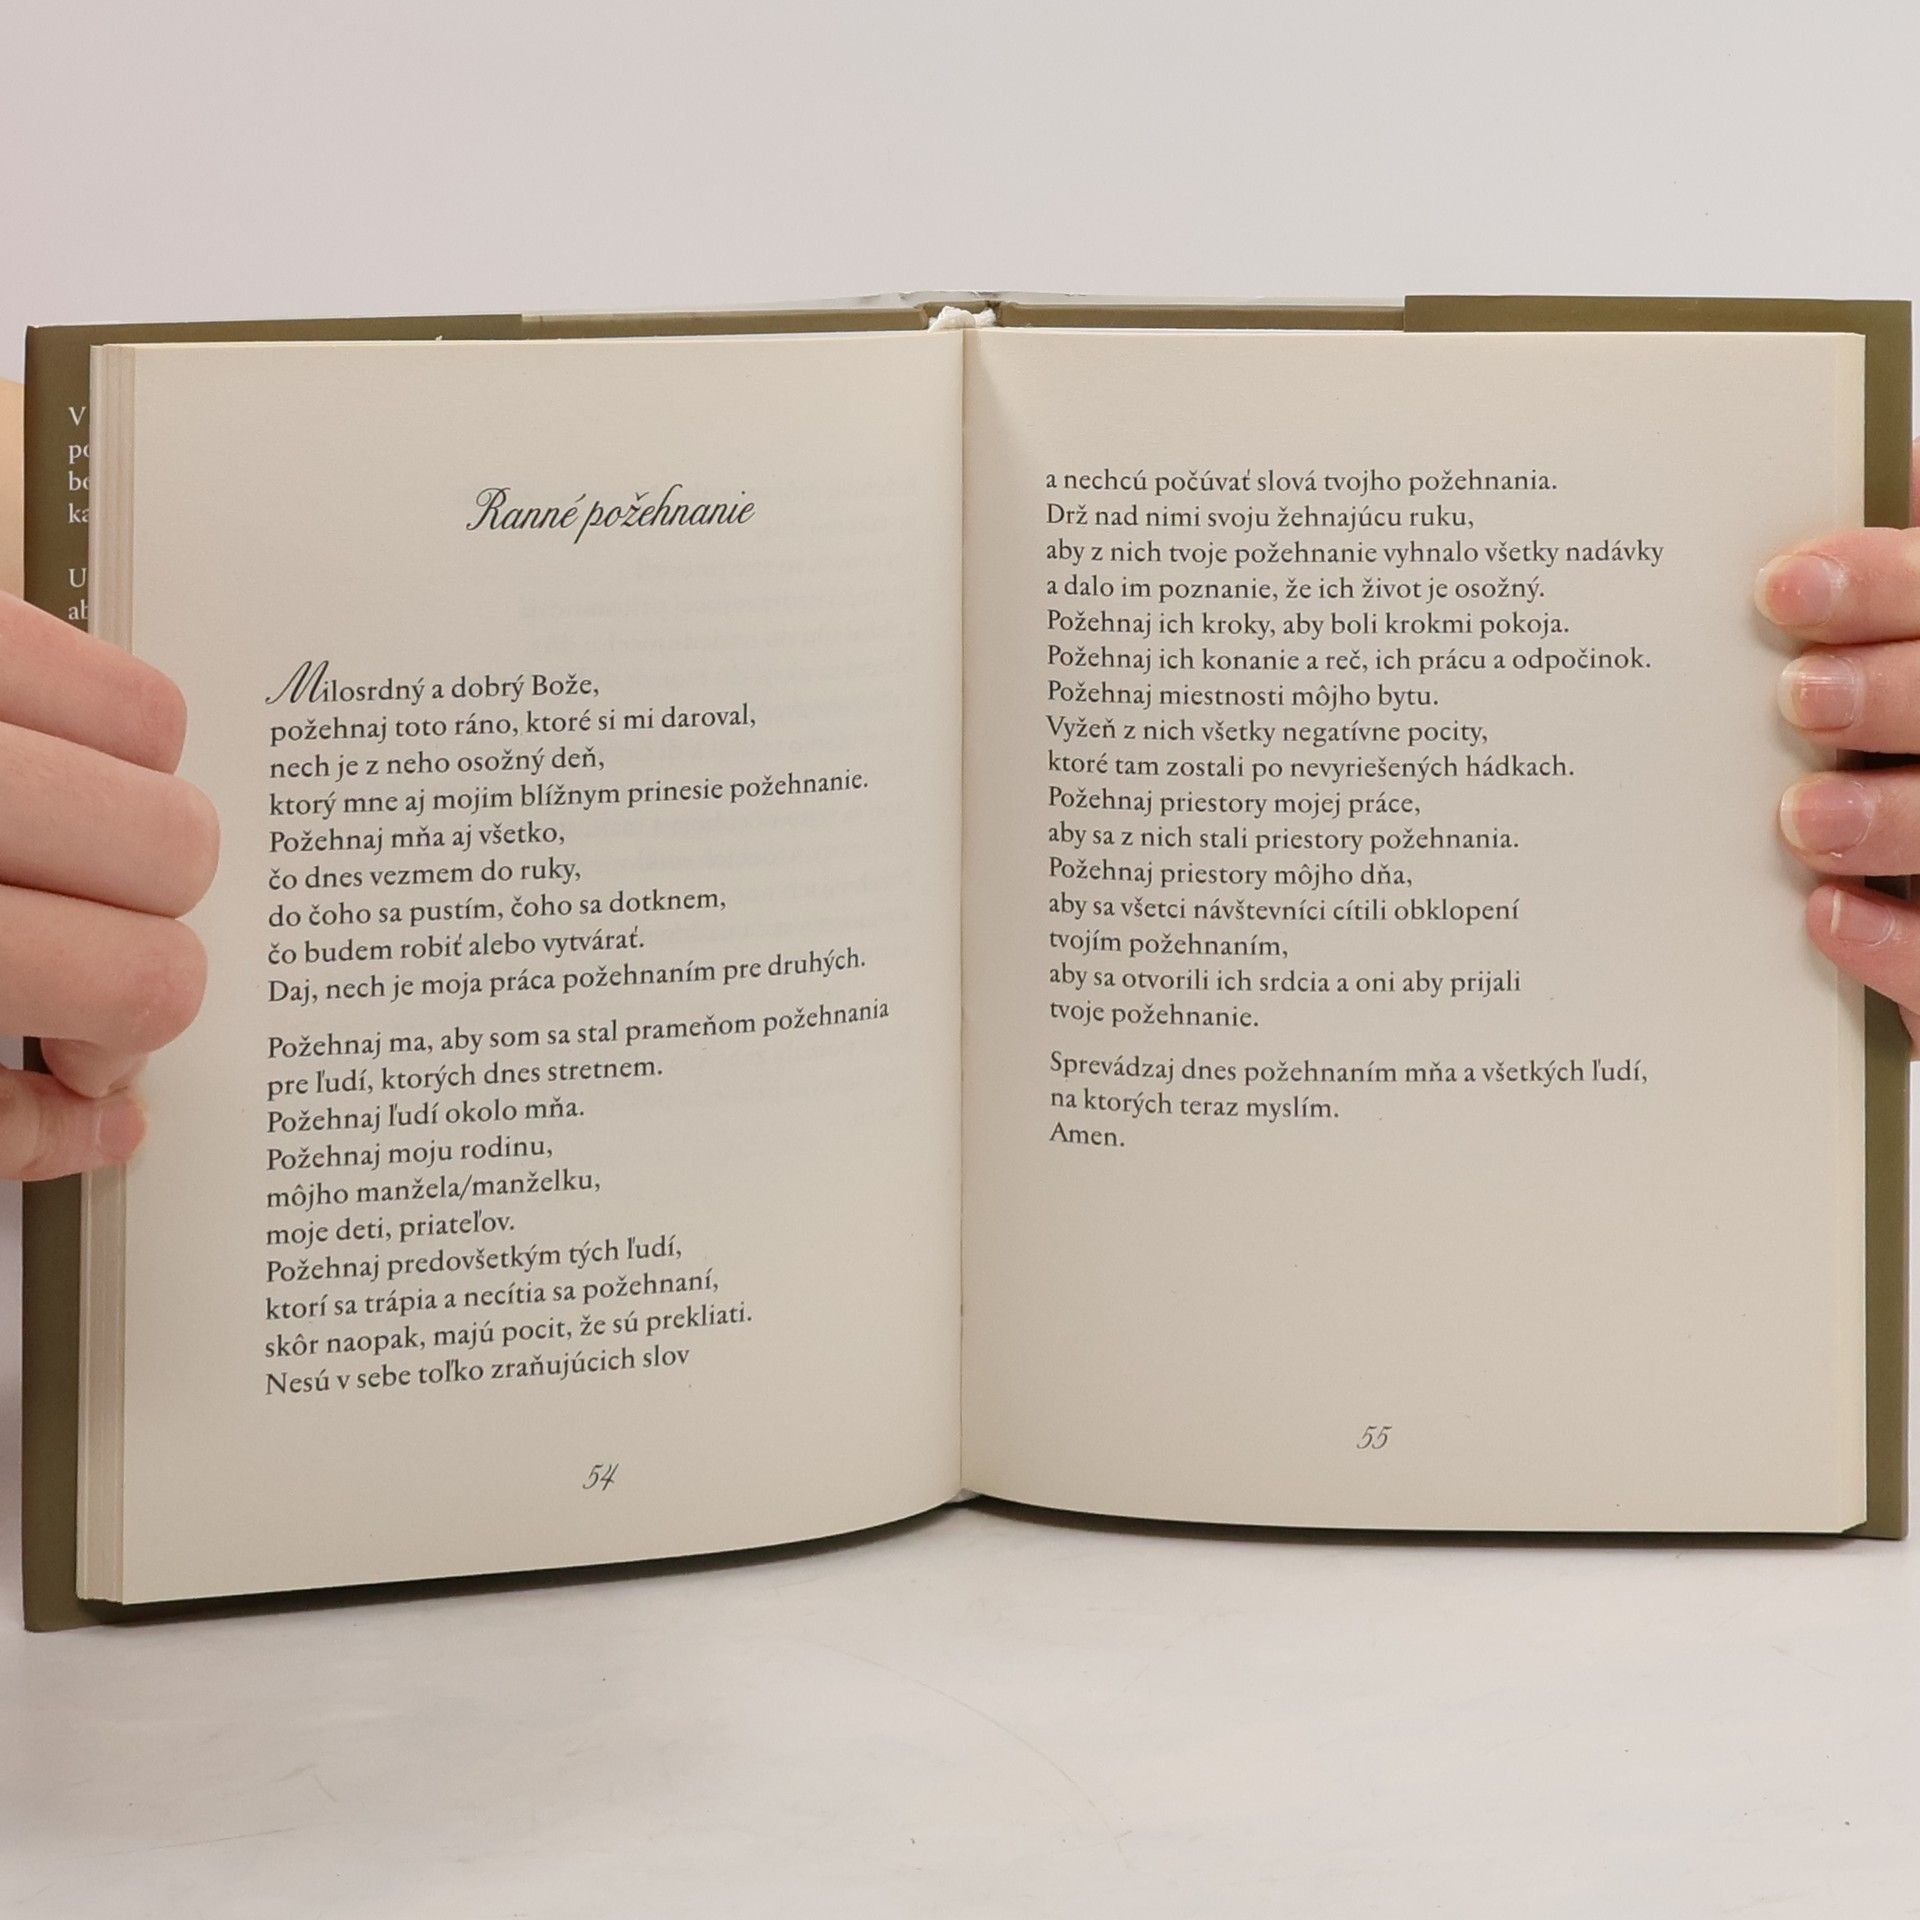 V
U
Ranné požehnanie
Milosrdný a dobrý Bože,
požehnaj toto ráno, ktoré si mi daroval,
nech je z neho osožný deň,
ktorý mne aj mojim blížnym prinesie požehnanie.
Požehnaj mňa aj všetko,
čo dnes vezmem do ruky,
do čoho sa pustím, čoho sa dotknem,
čo budem robiť alebo vytvárať.
Daj, nech je moja práca požehnaním pre druhých.
Požehnaj ma, aby som sa stal prameňom požehnania
pre ľudí, ktorých dnes stretnem.
Požehnaj ľudí okolo mňa.
Požehnaj moju rodinu,
môjho manžela/manželku,
moje deti, priateľov.
Požehnaj predovšetkým tých ľudí,
ktorí sa trápia a necítia sa požehnaní,
skôr naopak, majú pocit, že sú prekliati.
Nesú v sebe toľko zraňujúcich slov
54
a nechcú počúvať slová tvojho požehnania.
Drž nad nimi svoju žehnajúcu ruku,
aby z nich tvoje požehnanie vyhnalo všetky nadávky
a dalo im poznanie, že ich život je osožný.
Požehnaj ich kroky, aby boli krokmi pokoja.
Požehnaj ich konanie a reč, ich prácu a odpočinok.
Požehnaj miestnosti môjho bytu.
Vyžeň z nich všetky negatívne pocity,
ktoré tam zostali po nevyriešených hádkach.
Požehnaj priestory mojej práce,
aby sa z nich stali priestory požehnania.
Požehnaj priestory môjho dňa,
aby sa všetci návštevníci cítili obklopení
tvojím požehnaním,
aby sa otvorili ich srdcia a oni aby prijali
tvoje požehnanie.
Sprevádzaj dnes požehnaním mňa a všetkých ľudí,
na ktorých teraz myslím.
Amen.
55